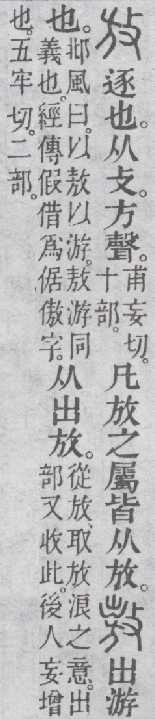 放逐也。从攴。方聲。甫妄切。十部。凡放之屬皆从放。敖出游
也。邶風曰。以敖以游。敖游同義也。經傳假借爲倨傲字。从出放。從放、取放浪之意。出部又收此。後人妄增
也。五牢切。二部。